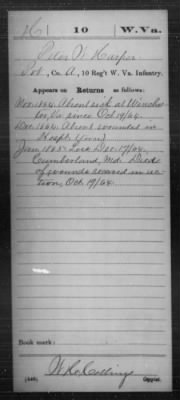 H | 10 | W. Va.
Peter W Harper
Pvt., Co. A, 10 Reg't W. Va. Infantry.
Appears on Returns as follows:
Nov. 1864. Absent sick at Winches
ter, Va. since Oct 19/64.
Dec. 1864. Absent wounded in
Hosp'l.
Jan. 1865. Loss Dec. 17/64.
Cumberland, Md. Died
of wounds received in ac
tion, Oct 19/64.
Book mark:
(546)
Copyist.